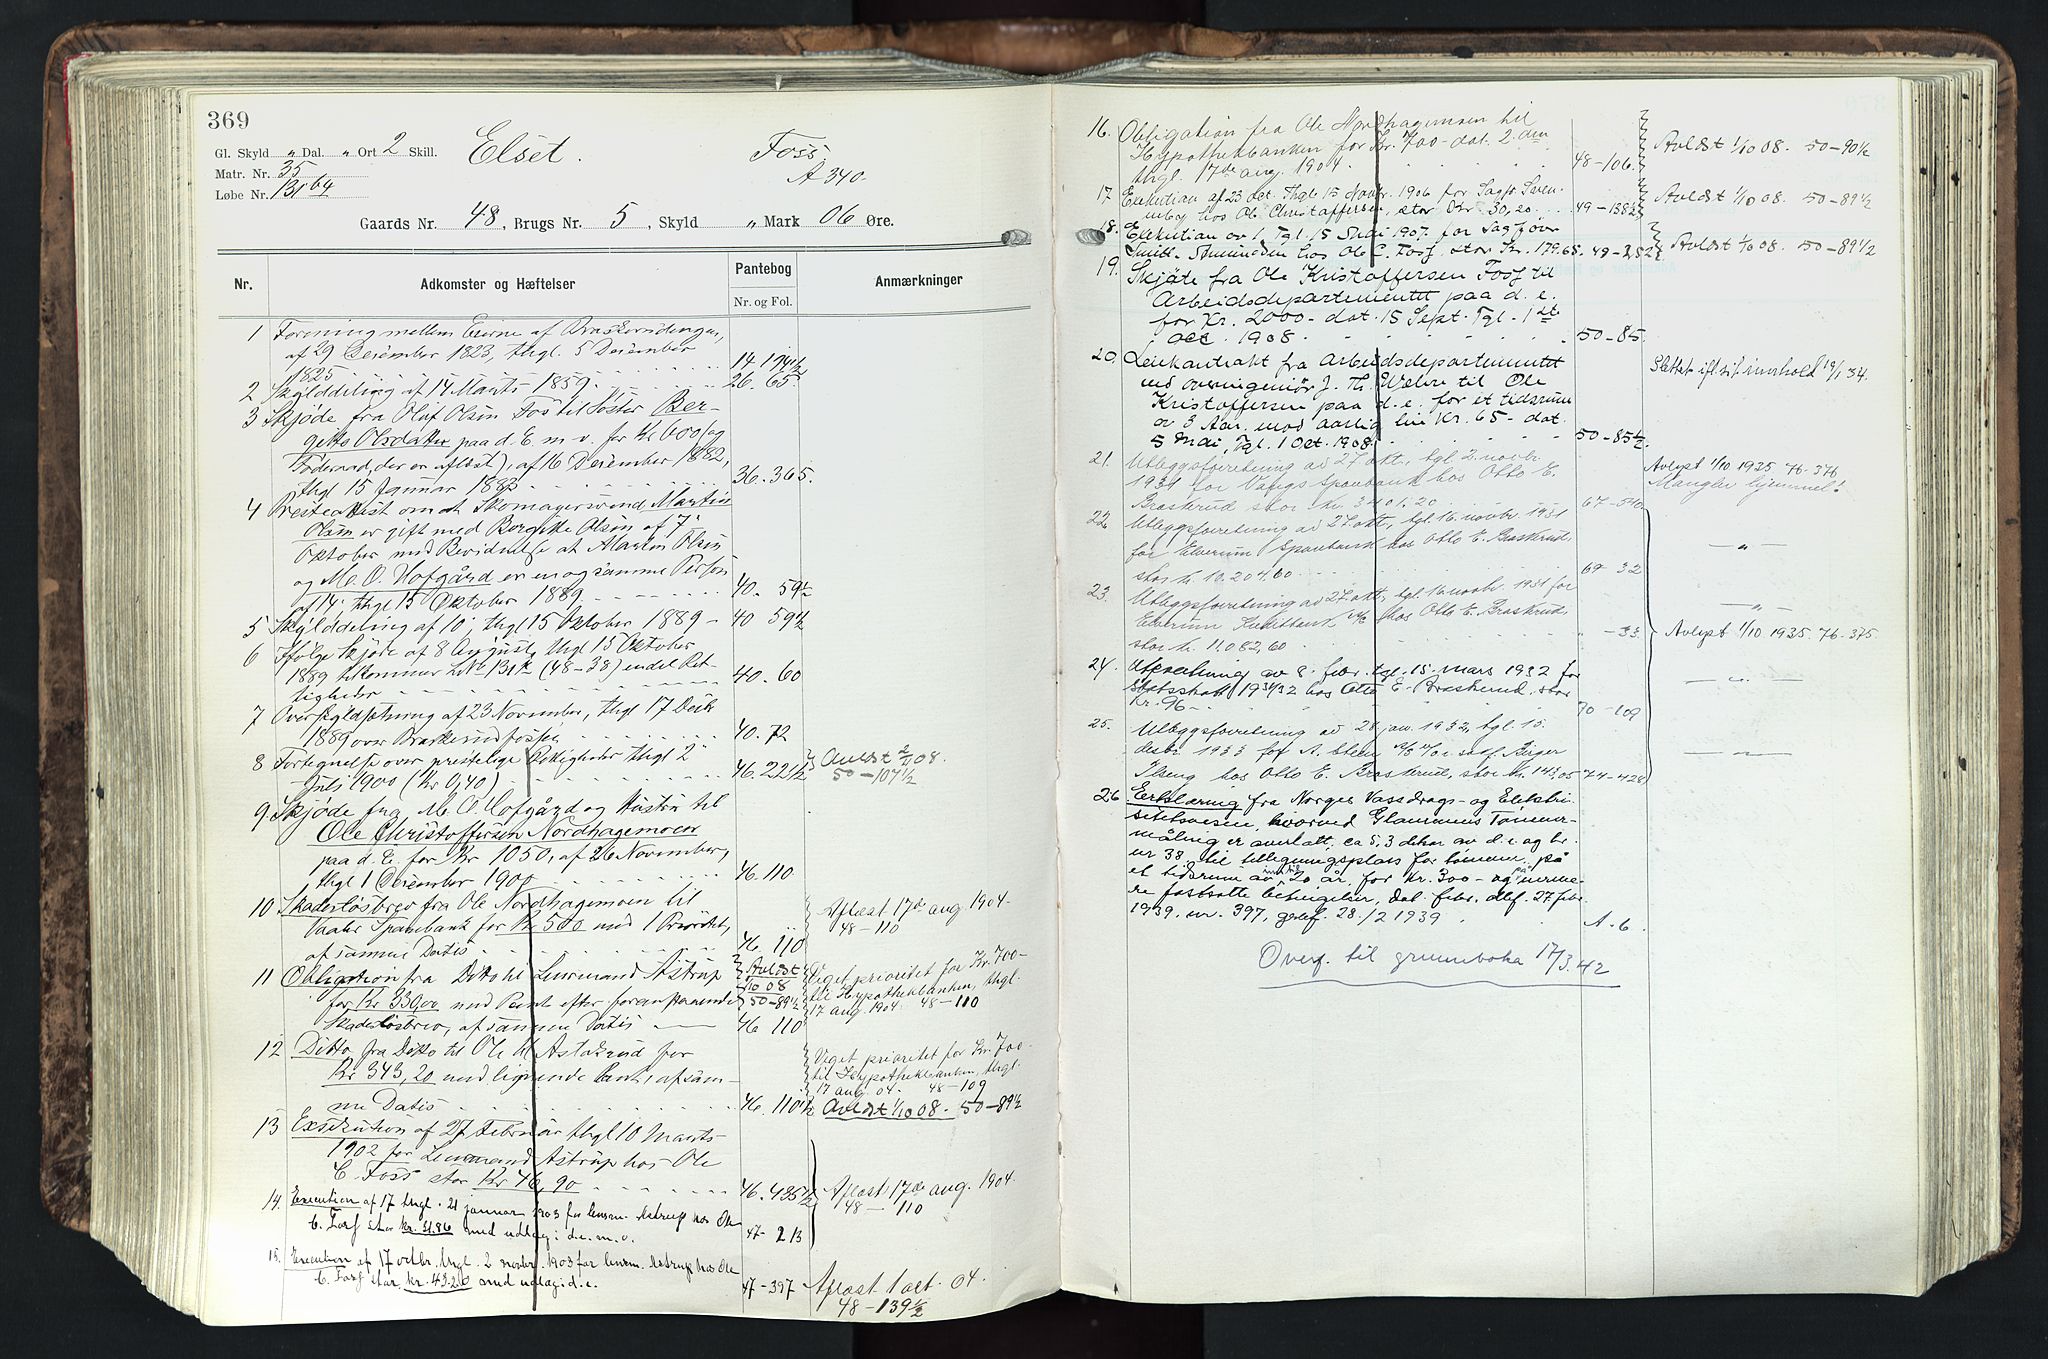 369
Gl. Skyld „ Dal. „ Ort 2 Skill. Elset. Foss
Matr. Nr. 35 A 340.
Løbe Nr. 131 64
Gaards Nr. 48, Brugs Nr. 5, Skyld „ Mark 06 Øre.
Nr. Adkomster og Hæftelser Pantebog Anmærkninger
Nr. og Fol.
1 Forening mellem Eierne af
af 29 December 1823, thgl. 5 December
1825 14 174 1/2
2 Skylddeling af 14 Marts 1859. 26. 65.
3 Skjøde fra Olaf Olsen Foss til Søster Ber-
gette Olsdatter paa d. E. m. v. for Kr 600 (og
Føderaad, der er afløst), af 16 December 1882,
thgl 15 Januar 1883 36. 365.
4 Presteattest om at Skomagersvend Martin
Olsen er gift med Bergitte Olsen af 7.
Oktober med Bevidnelse at Martin Olsen
og M. O. Hofgård er en og samme Person
af 14. thgl 15 Oktober 1889 40. 59 1/2
5 Skylddeling af 10, thgl 15 Oktober 1889 - 40 59 1/2
6 Ifølge Skjøde af 8 August, thgl 15 Oktober
1889 tilkommer L.No 131k (48-38) endel Ret-
tigheder 40. 60
7 Overskyldsetning af 23 November, thgl 17 Decbr
1889 over Braskerudfossen 40. 72
8 Fortegnelse over prestelige Rettigheder thgl 2
Juli 1900 (Kr 0,40) 46. 221 1/2 Avløst 2/11 08.
50-107 1/2
9. Skjøde fra M. O. Hofgård og Hustru til
Ole Christoffersen Nordhagemoen
paa d. E. for Kr 1050, af 26 November,
thgl 1 December 1900 46. 110
10 Skadesløsbrev fra Ole Nordhagemoen til Afløst 17de aug 1904.
Vaaler Sparebank for Kr 500 med 1 Prioritet, 48-110
af samme Datis 46. 110
11 Obligation fra Ditto til Lensmand Åstrup Avløst 1/10 08 50-89 1/2 Veget prioritet for Kr. 700-
for Kr 330,00 med Pant efter foranstaaende til Hypothekbanken, thgl.
Skadesløsbrev, af samme Datis 46 110 17 aug. 1904. 48-110
12 Ditto fra Ditto til Ole H. Astakrud for Veget prioritet for Kr. 700-
Kr 343,20 med lignende Pant, af sam- til Hypothekbanken, thgl.
me Datis 46. 110 1/2 17 aug 04. 48-109
Avløst 1/10 08. 50-89 1/2
13 Exsekution af 27 Februar thgl 10 Marts
1902 for Lensmand Åstrup hos Ole
C. Foss stor Kr 46,90 46. 435 1/2 Afløst 17de aug. 1904.
48-110
14. Execution af 17 thgl. 21 januar 1903 for lensm. Astrup hos Ole
C. Foss stor kr. 31.86 med udlæg i d. e. m. v. 47-213
15. Execution af 17 octbr. thgl. 2 novbr. 1903 for lensm. Astrup hos Ole
C. Foss stor kr. 43.20 med udlæg i d. e. 47-397 Afløst 1 oct. 04.
48-139 1/2
16. Obligation fra Ole Nordhagemoen til
Hypothekbanken for Kr. 700- dat. 2. den Avløst 1/10 08. 50-90 1/2
thgl. 17de aug. 1904. 48-106.
17 Exekution af 23 oct. Thgl. 15 Novbr. 1906 for Sagf. Sven-
hos Ole Christoffersen, stor Kr. 30,20 49-138 1/2 Avløst 1/10 08. 50-89 1/2
18. Exekution av 1. Tgl. 15 Mai 1907. for Sagfører
hos Ole C. Foss, stor Kr. 179.65. 49-252 Avløst 1/10 08. 50-89 1/2
19. Skjøte fra Ole Kristoffersen Foss til
Arbeidsdepartementet paa d. e.
for Kr. 2000- dat. 15 Sept. Tgl. 1st
oct. 1908 50-85.
20. Leiekontrakt fra Arbeidsdepartementet Slettet ifl. sit innhold 19/1 34.
ved overingeniør J. Th. Welve til Ole
Kristoffersen paa d. e. for et tidsrum
av 3 Aar. mod aarlig leie Kr. 65- dat.
5 Mai, Tgl. 1 Oct. 1908. 50-85 1/2.
21. Utleggsforretning av 27 okt., tgl 2. novbr. Avlyst 1/10 1935 76-376
1931 for Vangs Sparebank hos Otto E. Mangler hjemmel!
Braskrud stor kr. 3401.20 67-540
22. Utleggsforretning av 27. okt., tgl. 16. novbr. 1931
for Elverum Sparebank hos Otto E. Braskrud, — „ —
stor kr. 10.204.60 69-32
23. Utleggsforretning av 27. okt., tgl. 16. novbr. 1931 for — „ —
Elverum Kreditbank A/S hos Otto E. Braskrud,
stor kr. 11.082,60 „ -33 Avlyst 1/10 1935. 76-375.
24. Utpantning av 8. febr. tgl. 15. mars 1932 for
statsskatt 1931/32 hos Otto E. Braskerud, stor — „ —
Kr. 96- 70-109
25. Utleggsforretning av 28 jan. 1932, tgl. 15.
desbr. 1933 for A. A/S v/o.r. sakf. Birger — „ —
Ilseng hos Otto E. Braskrud, stor kr. 143,05 74-428
26 Erklæring fra Norges Vassdrags- og Elektri-
sitetsvesen, hvorved Glommens Tømmer-
måling er overlatt ca 5,3 dekar av d. e. og br.
nr 38. til tillegningsplass for tømmer på
et tidsrum av inntil 20 år, for Kr. 300- og på nærme-
re fastsatte betingelser, Dat. febr. 27 febr.
1939. nr. 397, 28/2 1939. A. 6
Overf. til grunnboka 17/3.42